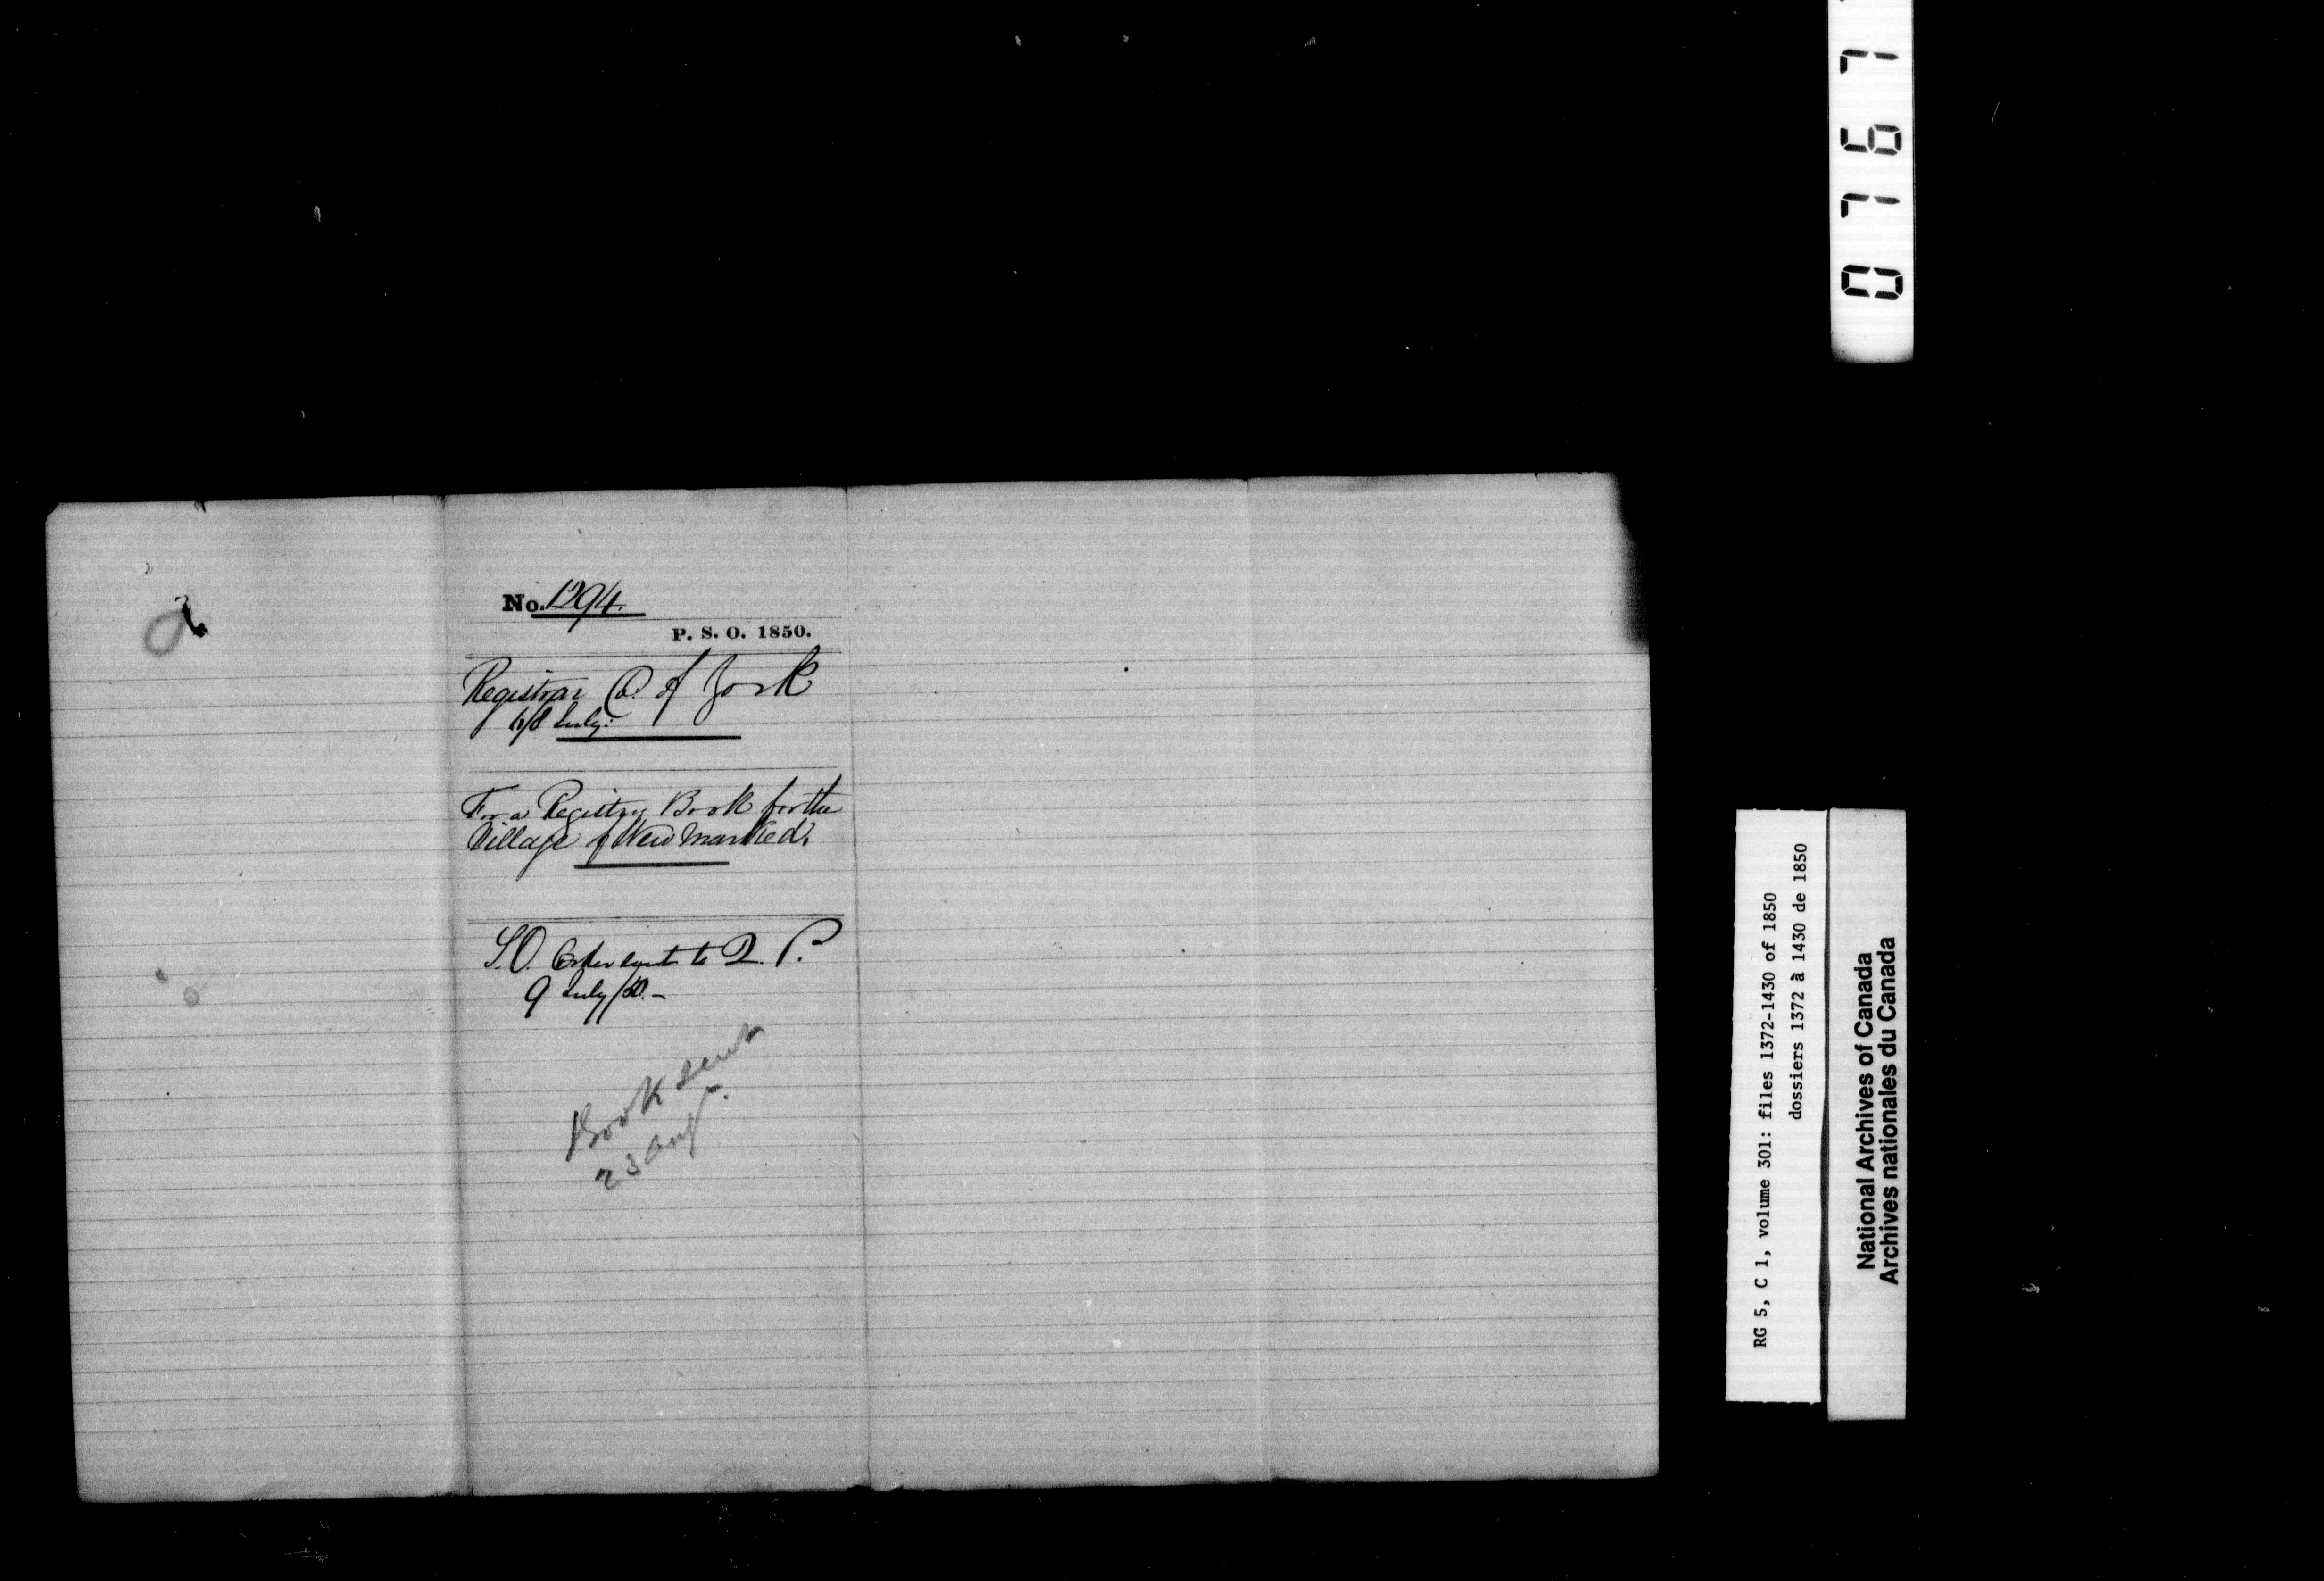 No. 1294.
P. S. O. 1850.
Registrar Co. of York
6/8 July.
For a Registry Book for the
Village of New Marked.
S.O. Order sent to Q. P.
9 July/50.-
Book sent
23 Augt.
0767
RG 5, C 1, volume 301: files 1372-1430 of 1850
dossiers 1372 à 1430 de 1850
National Archives of Canada
Archives nationales du Canada